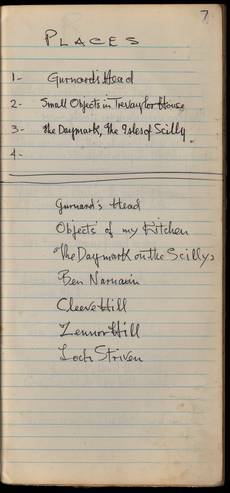 7
PLACES
1- Gurnard's Head
2- Small Objects in Trevaylor House
3- The Daymark, The Isles of Scilly.
4-
Gurnard's Head
Objects of my Kitchen
The Daymark on the Scillys
Ben Narnain
Cleeve Hill
Zennor Hill
Loch Striven